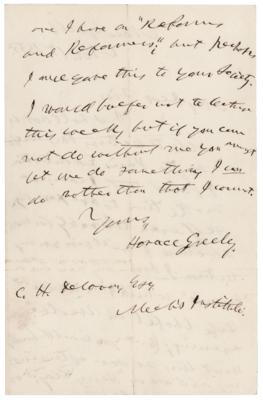 one I have on "Reforms
and Reformers", but perhaps
I once gave this to your Society.
I would prefer not to lecture
this weekly but if you can
not do without me you must
let me do something I can
do rather than that I cannot.
Yours,
Horace Greeley.
C. H. Delavan, Esq
Mech's Institute.